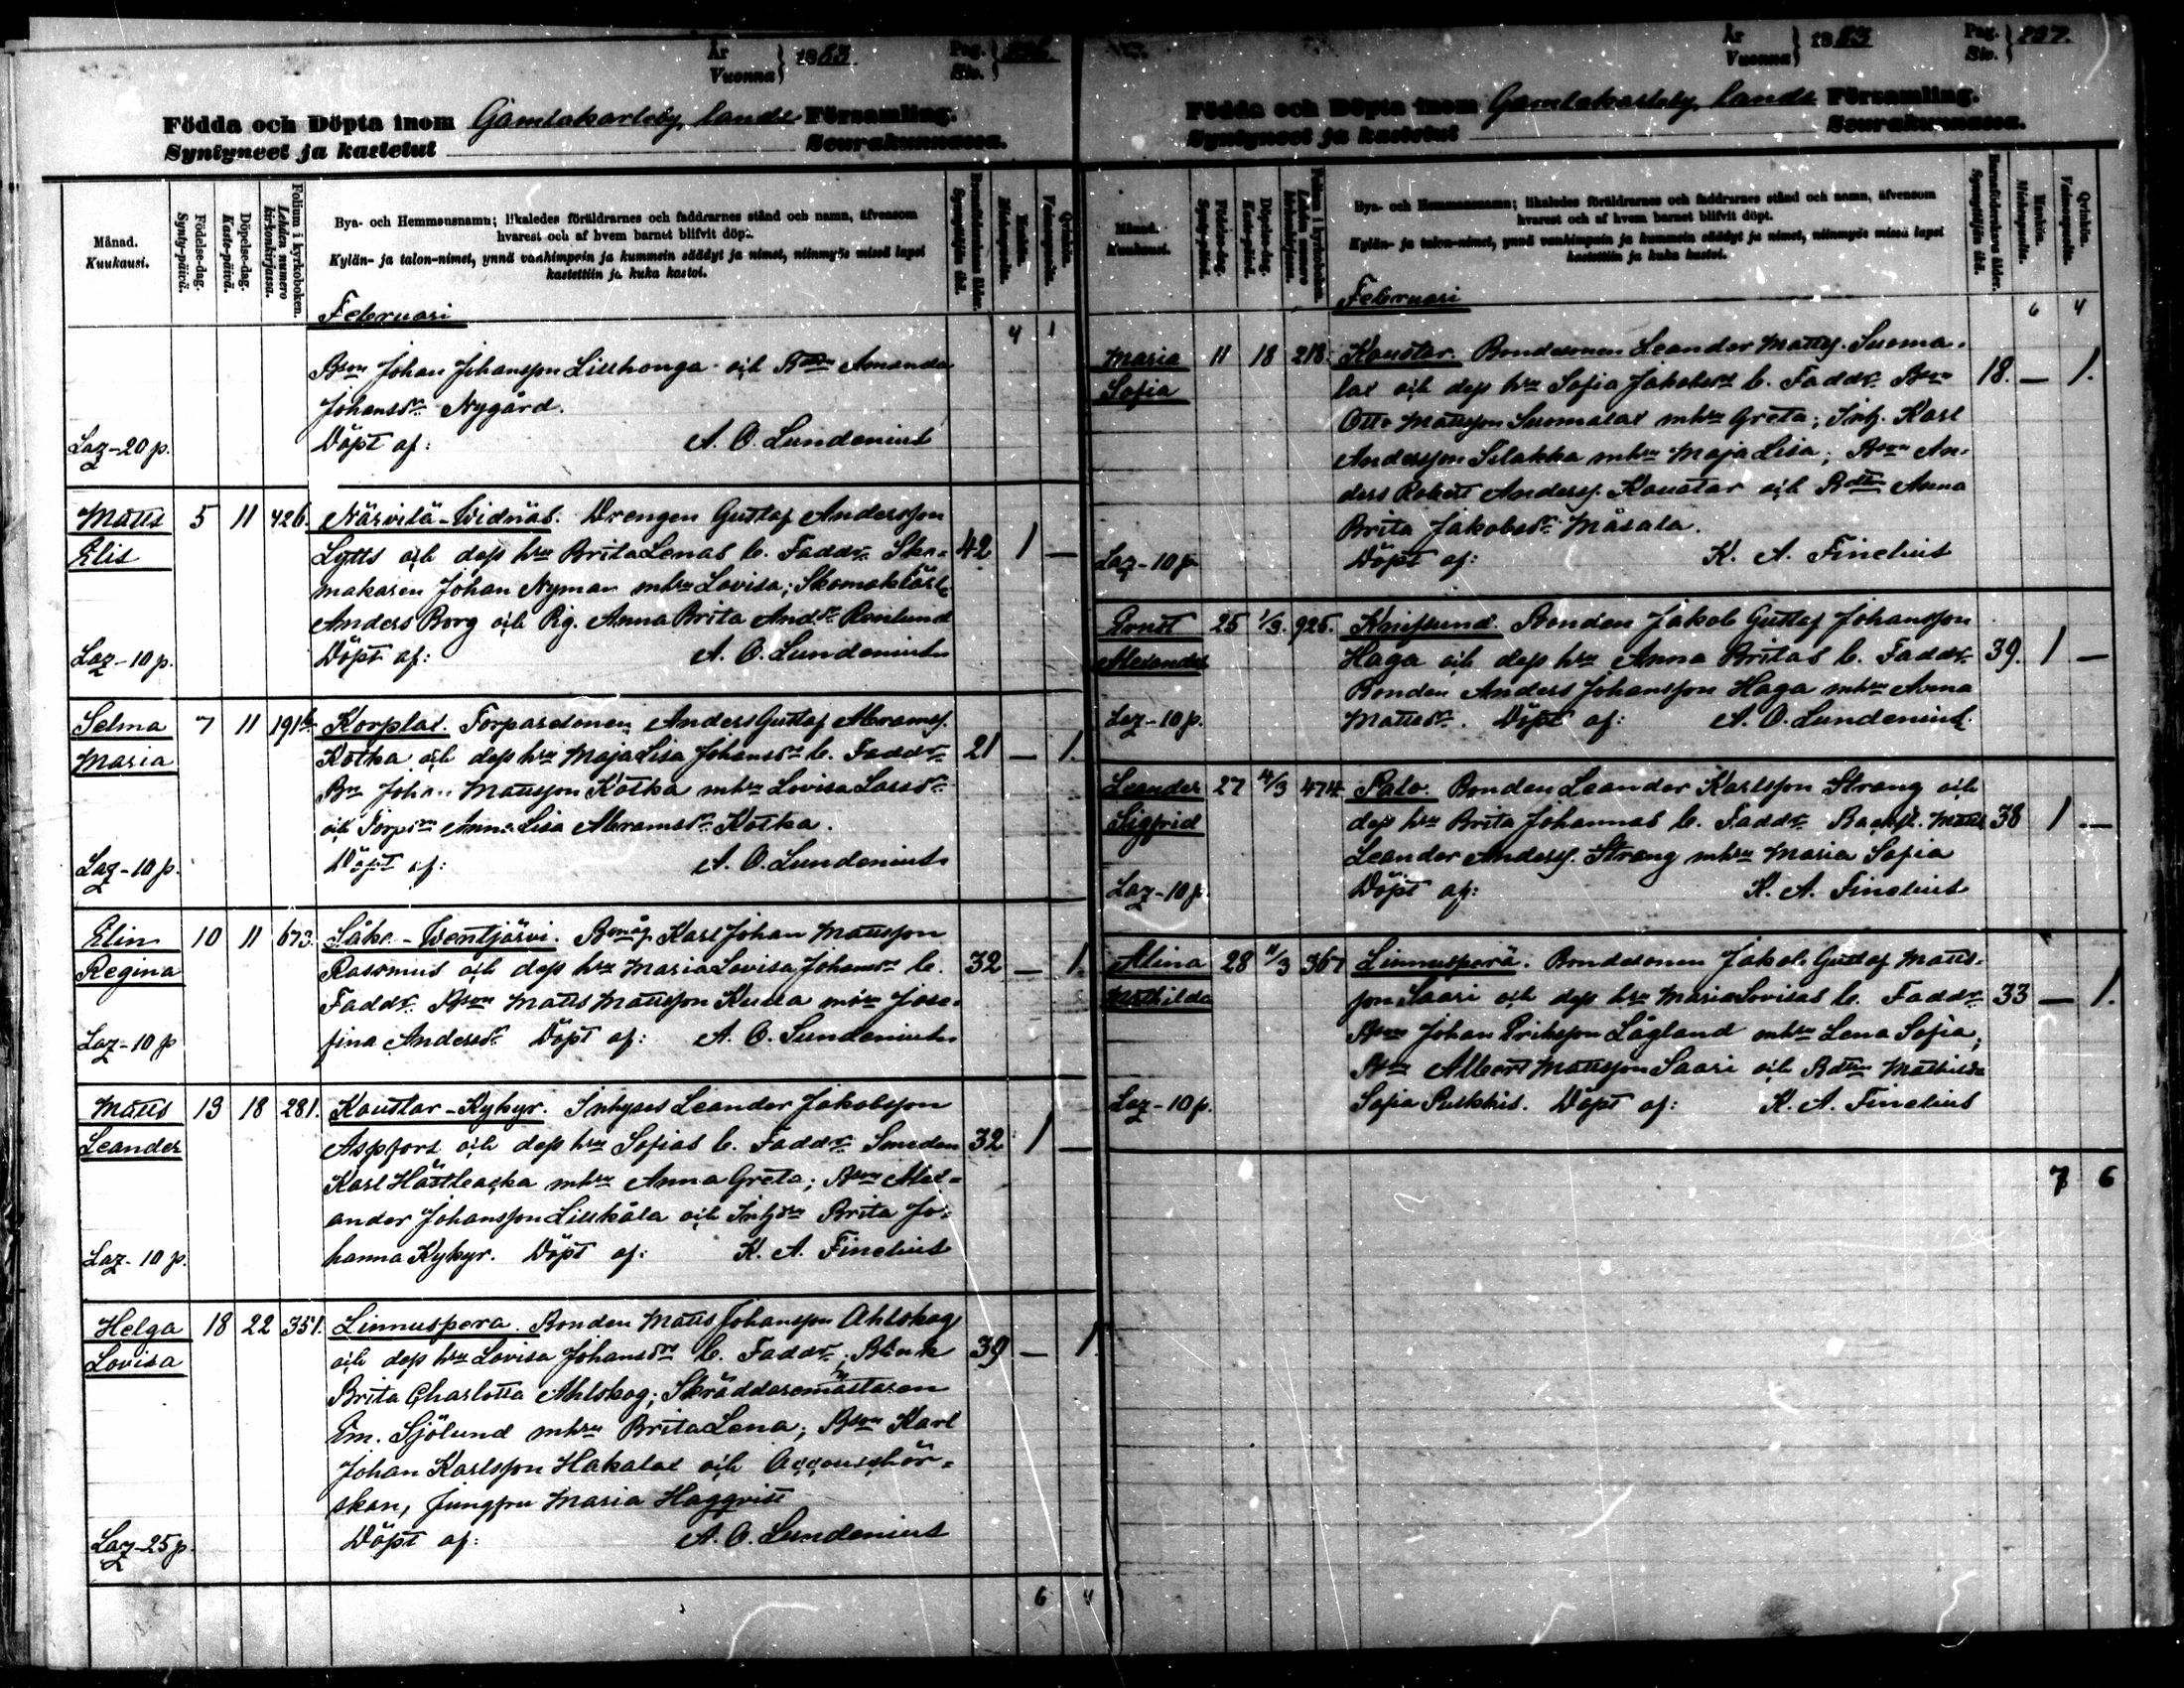 År
Vuonna } 1883.
Pag.
Siv. }
Födda och Döpta inom Gamlakarleby lands Församling.
Syntyneet ja kastetut Seurakunnassa.
Månad.
Kuukausi.
Födelse-dag.
Synty-päivä.
Döpelse-dag.
Kaste-päivä.
Folium i kyrkoboken.
Lehden numero kirkonkirjassa.
Bya- och Hemmansnamn; likaledes föräldrarnes och faddrarnes stånd och namn, äfvensom
hvarest och af hvem barnet blifvit döpt.
Kylän- ja talon-nimet, ynnä vanhimpain ja kummein säädyt ja nimet, niinmyös missä lapsi
kastettiin ja kuka kastoi.
Barnföderskans ålder.
Synnyttäjän ikä.
Mankön.
Miehenpuolia.
Qvinkön.
Vaimonpuolia.
Februari
4 1
Bson Johan Johansson Lillhonga och Bdtr Amanda
Johansdr Nygård.
Laz-20 p. Döpt af: A. O. Lundenius
Matts 5 11 426. Närvilä-Widnäs. Drengen Gustaf Andersson
Elis Lytts och dess hru Brita Lenas b. Faddr. Sko- 42 1 —
makaren Johan Nyman mhru Lovisa; Skomaklärl.
Anders Borg och Pig. Anna Brita Andsdr Renlund
Laz-10 p. Döpt af: A. O. Lundenius
Selma 7 11 191 Korplax. Torparesonen Anders Gustaf Abramss.
Maria Kotka och dess hru Maja Lisa Johansdrs b. Faddr. 21 — 1.
Bn Johan Mattsson Kotka mhru Lovisa Larsdr
och Anna Lisa Abramsdr Kotka.
Laz-10 p. Döpt af: A. O. Lundenius
Elin 10 11 673. Såka-Wentjärvi. Bmåg Karl Johan Mattsson
Regina Rasmus och dess hru Maria Lovisa Johansdrs b. 32 — 1.
Faddr. Bson Matts Mattsson mhru Jose-
Laz-10 p fina Andersdr Döpt af: A. O. Lundenius
Matts 13 18 281. Kaustar-Kykyr. Inhyses Leander Jakobsson
Leander Aspfors och dess hru Sofias b. Faddr. Smeden 32 1 —
Karl Hästbacka mhru Anna Greta; Bson Alex-
ander Johansson Lillkåla och Brita Jo-
Laz-10 p. hanna Kykyr. Döpt af: K. A. Finelius
Helga 18 22 351. Linnuspera. Bonden Matts Johansson Ahlskog
Lovisa och dess hru Lovisa Johansdrs b. Faddr. 39 — 1
Brita Charlotta Ahlskog; Skräddaremästaren
Em. Sjölund mhru Brita Lena; Bson Karl
Johan Karlsson Hakalax och Accouchör-
skan, Jungfru Maria Haggqvist
Laz-25 p. Döpt af: A. O. Lundenius
6 4
År
Vuonna } 1883
Pag.
Siv. } 197.
Födda och Döpta inom Gamlakarleby lands Församling.
Syntyneet ja kastetut Seurakunnassa.
Månad.
Kuukausi.
Födelse-dag.
Synty-päivä.
Döpelse-dag.
Kaste-päivä.
Folium i kyrkoboken.
Lehden numero kirkonkirjassa.
Bya- och Hemmansnamn; likaledes föräldrarnes och faddrarnes stånd och namn, äfvensom
hvarest och af hvem barnet blifvit döpt.
Kylän- ja talon-nimet, ynnä vanhimpain ja kummein säädyt ja nimet, niinmyös missä lapsi
kastettiin ja kuka kastoi.
Barnföderskans ålder.
Synnyttäjän ikä.
Mankön.
Miehenpuolia.
Qvinkön.
Vaimonpuolia.
Februari
6 4
Maria 11 18 218. Kaustar. Bondesonen Leander Mattss. Suoma-
Sofia lax och dess hru Sofia Jakobsdrs b. Faddr. Bson 18. — 1.
Otto Mattsson Suomalax mhru Greta; Inh. Karl
Andersson Silakka mhru Maja Lisa; Bson An-
ders Robert Anderss. Kaustar och Bdtr Anna
Brita Jakobsdr Måsala.
Laz-10 p. Döpt af: K. A. Finelius
Ernst 25 1/3. 925. Knifsund. Bonden Jakob Gustaf Johansson
Alexander Haga och dess hru Anna Britas b. Faddr. 39. 1 —
Bonden Anders Johansson Haga mhru Anna
Laz-10 p. Mattsdr. Döpt af: A. O. Lundenius.
Leander 27 4/3 474 Palo. Bonden Leander Karlsson Strang och
Sigfrid dess hru Brita Johannas b. Faddr. Backst. Matts 38 1 —
Leander Anderss. Strang mhru Maria Sofia
Laz-10 p. Döpt af: K. A. Finelius
Alina 28 11/3 367 Linnusperä. Bondesonen Jakob Gustaf Matts-
Mathilda son Saari och dess hru Maria Lovisas b. Faddr. 33 — 1.
Bson Johan Eriksson Lågland mhru Lena Sofia;
Albert Mattsson Saari och Bdtr Mathilda
Laz-10 p. Sofia Pulkkis. Döpt af: K. A. Finelius
7 6